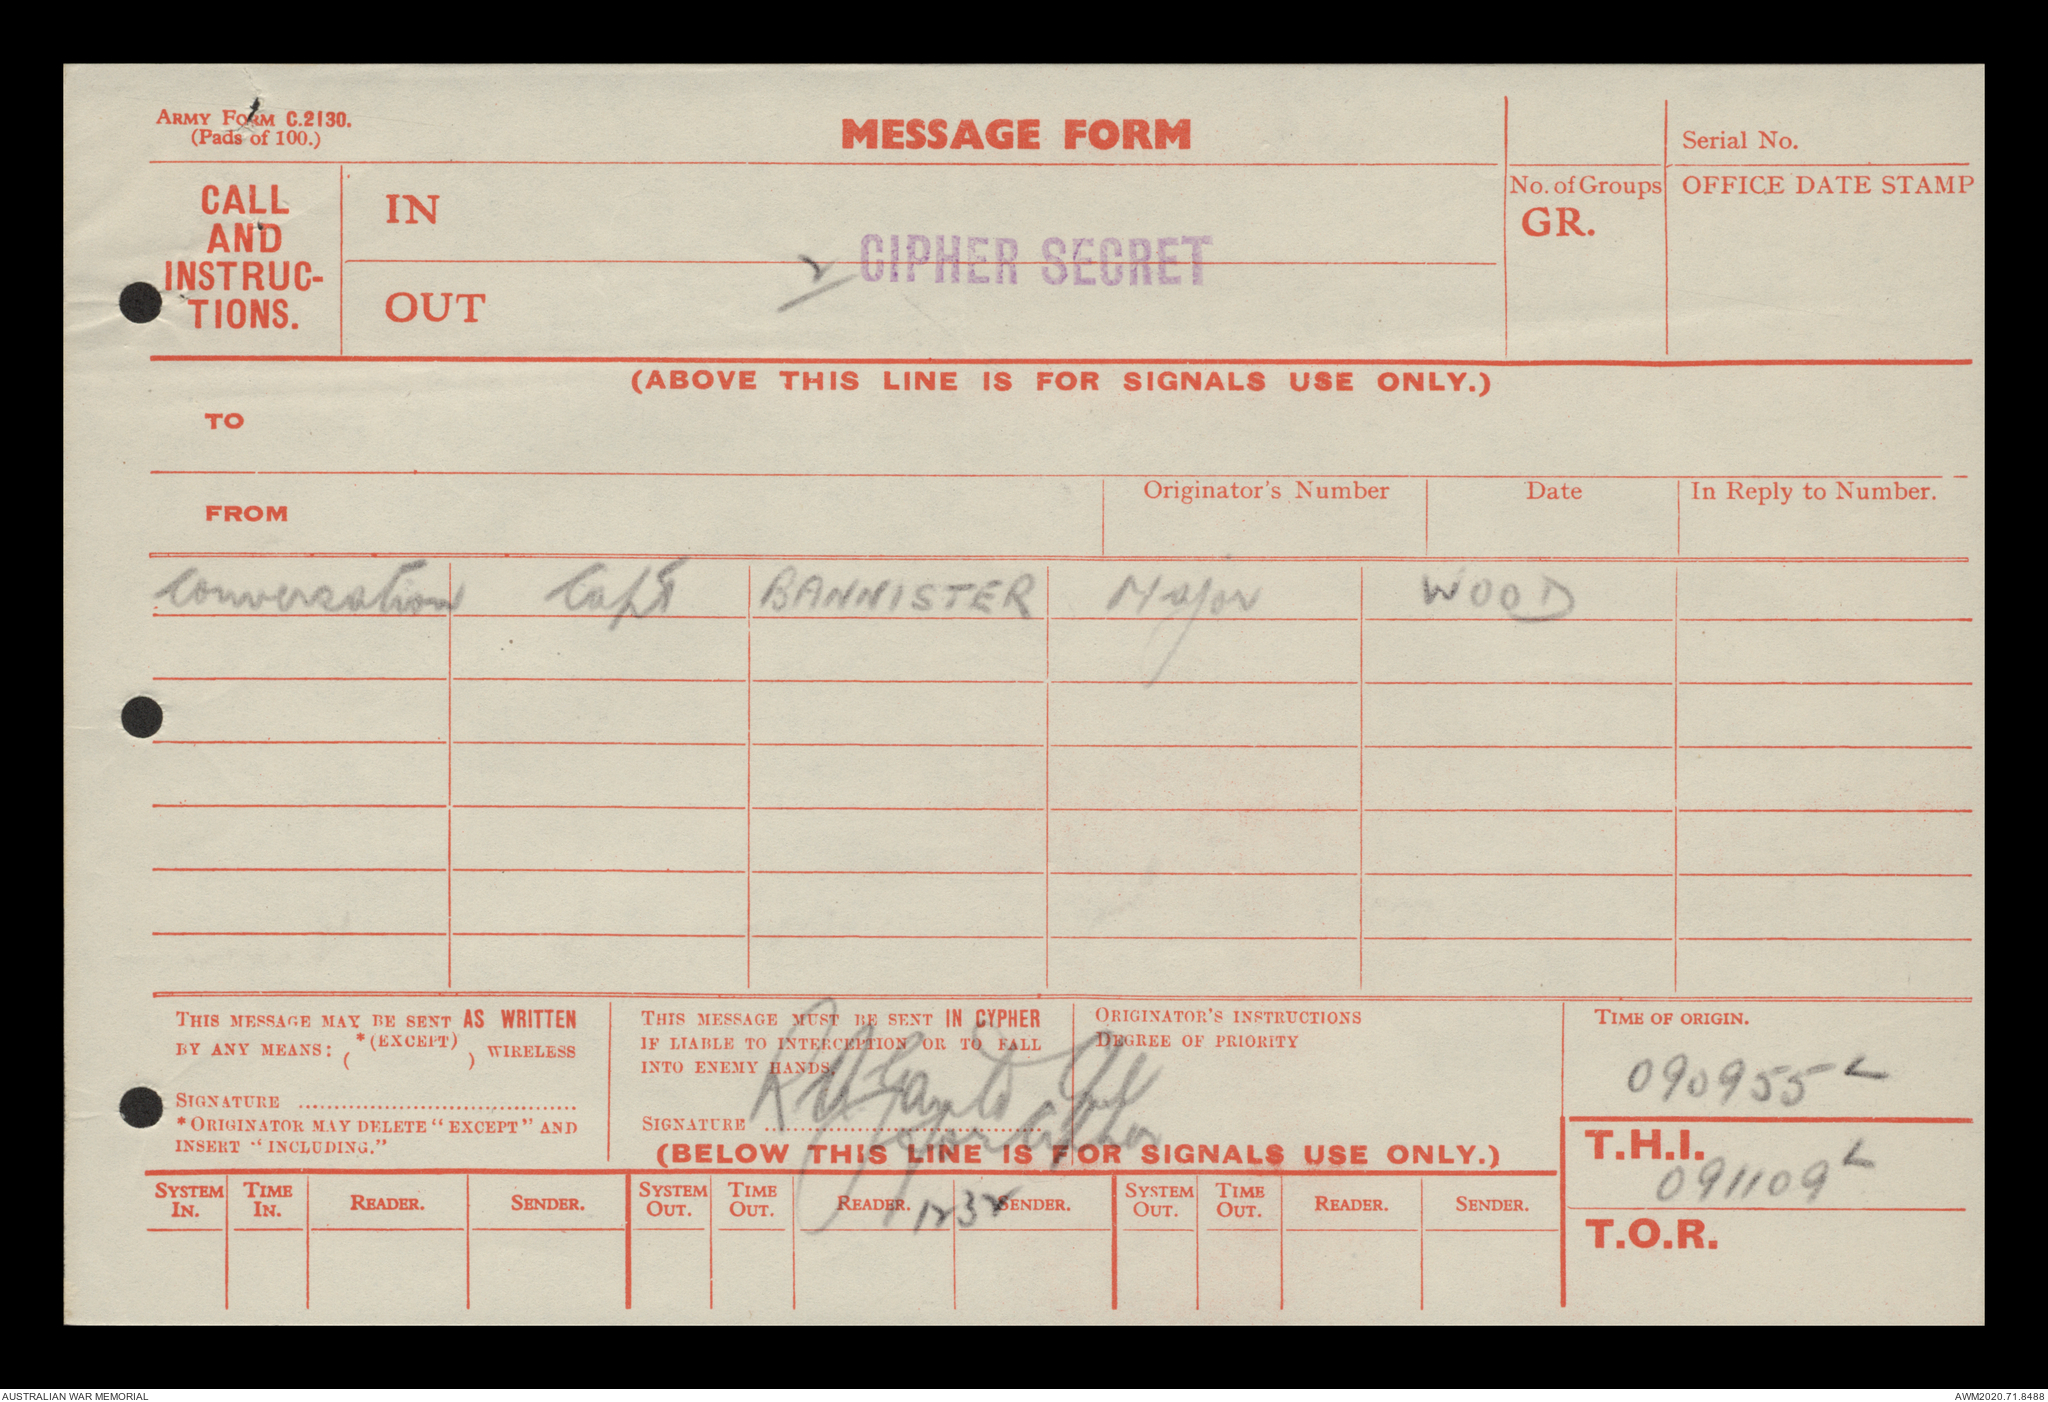 ARMY FORM C.2130.
(Pads of 100.)
MESSAGE FORM
Serial No.
CALL
AND
INSTRUC-
TIONS.
IN
OUT
2
CIPHER SECRET
No. of Groups
GR.
OFFICE DATE STAMP
(ABOVE THIS LINE IS FOR SIGNALS USE ONLY.)
TO
FROM
Originator's Number
Date
In Reply to Number.
Conversation Capt BANNISTER Major WOOD
THIS MESSAGE MAY BE SENT AS WRITTEN
BY ANY MEANS: ( *(EXCEPT) ) WIRELESS
SIGNATURE
*ORIGINATOR MAY DELETE "EXCEPT" AND
INSERT "INCLUDING."
THIS MESSAGE MUST BE SENT IN CYPHER
IF LIABLE TO INTERCEPTION OR TO FALL
INTO ENEMY HANDS.
SIGNATURE
ORIGINATOR'S INSTRUCTIONS
DEGREE OF PRIORITY
TIME OF ORIGIN.
090955 L
(BELOW THIS LINE IS FOR SIGNALS USE ONLY.)
T.H.I.
091109 L
T.O.R.
SYSTEM IN. TIME IN. READER. SENDER. SYSTEM OUT. TIME OUT. READER. SENDER. SYSTEM OUT. TIME OUT. READER. SENDER.
1232
AUSTRALIAN WAR MEMORIAL
AWM2020.71.8488